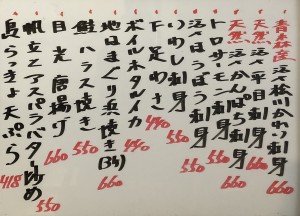 青森産 活〆桜川かわつ刺身 660
天然 活〆平目刺身 660
天然 活〆かんぱち刺身 660
トロサーモン刺身 550
活〆ほうぼう刺身 660
いわし刺身 550
下足わさ 440
ボイルホタルイカ 440
地はまぐり浜焼き(3ケ) 660
鮭ハラス焼き 550
目光唐揚げ 660
帆立とアスパラバター炒め 550
島らっきょ天ぷら 418